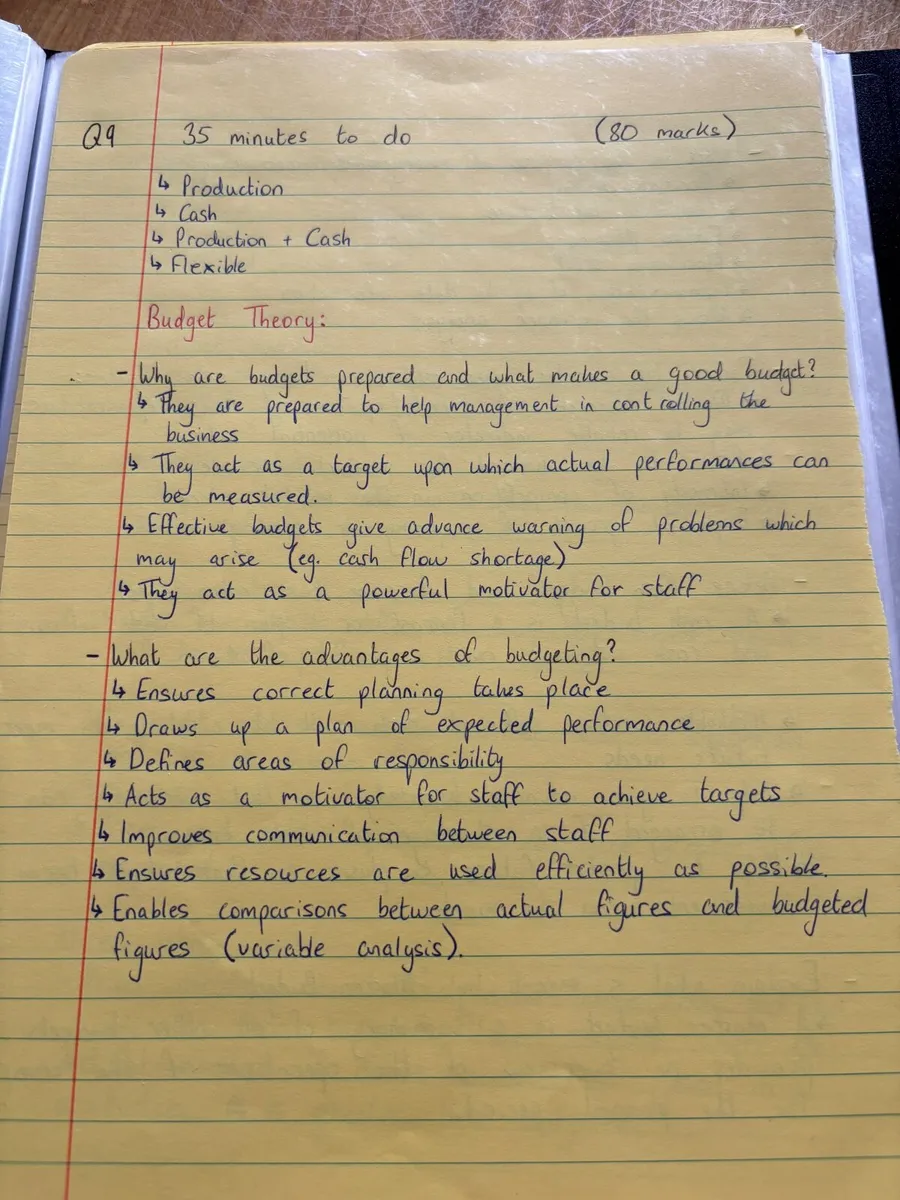 Q9 35 minutes to do (80 marks)
↳ Production
↳ Cash
↳ Production + Cash
↳ Flexible
Budget Theory:
- Why are budgets prepared and what makes a good budget?
↳ They are prepared to help management in controlling the
business
↳ They act as a target upon which actual performances can
be measured.
↳ Effective budgets give advance warning of problems which
may arise (eg. cash flow shortage)
↳ They act as a powerful motivator for staff
- What are the advantages of budgeting?
↳ Ensures correct planning takes place
↳ Draws up a plan of expected performance
↳ Defines areas of responsibility
↳ Acts as a motivator for staff to achieve targets
↳ Improves communication between staff
↳ Ensures resources are used efficiently as possible.
↳ Enables comparisons between actual figures and budgeted
figures (variable analysis).